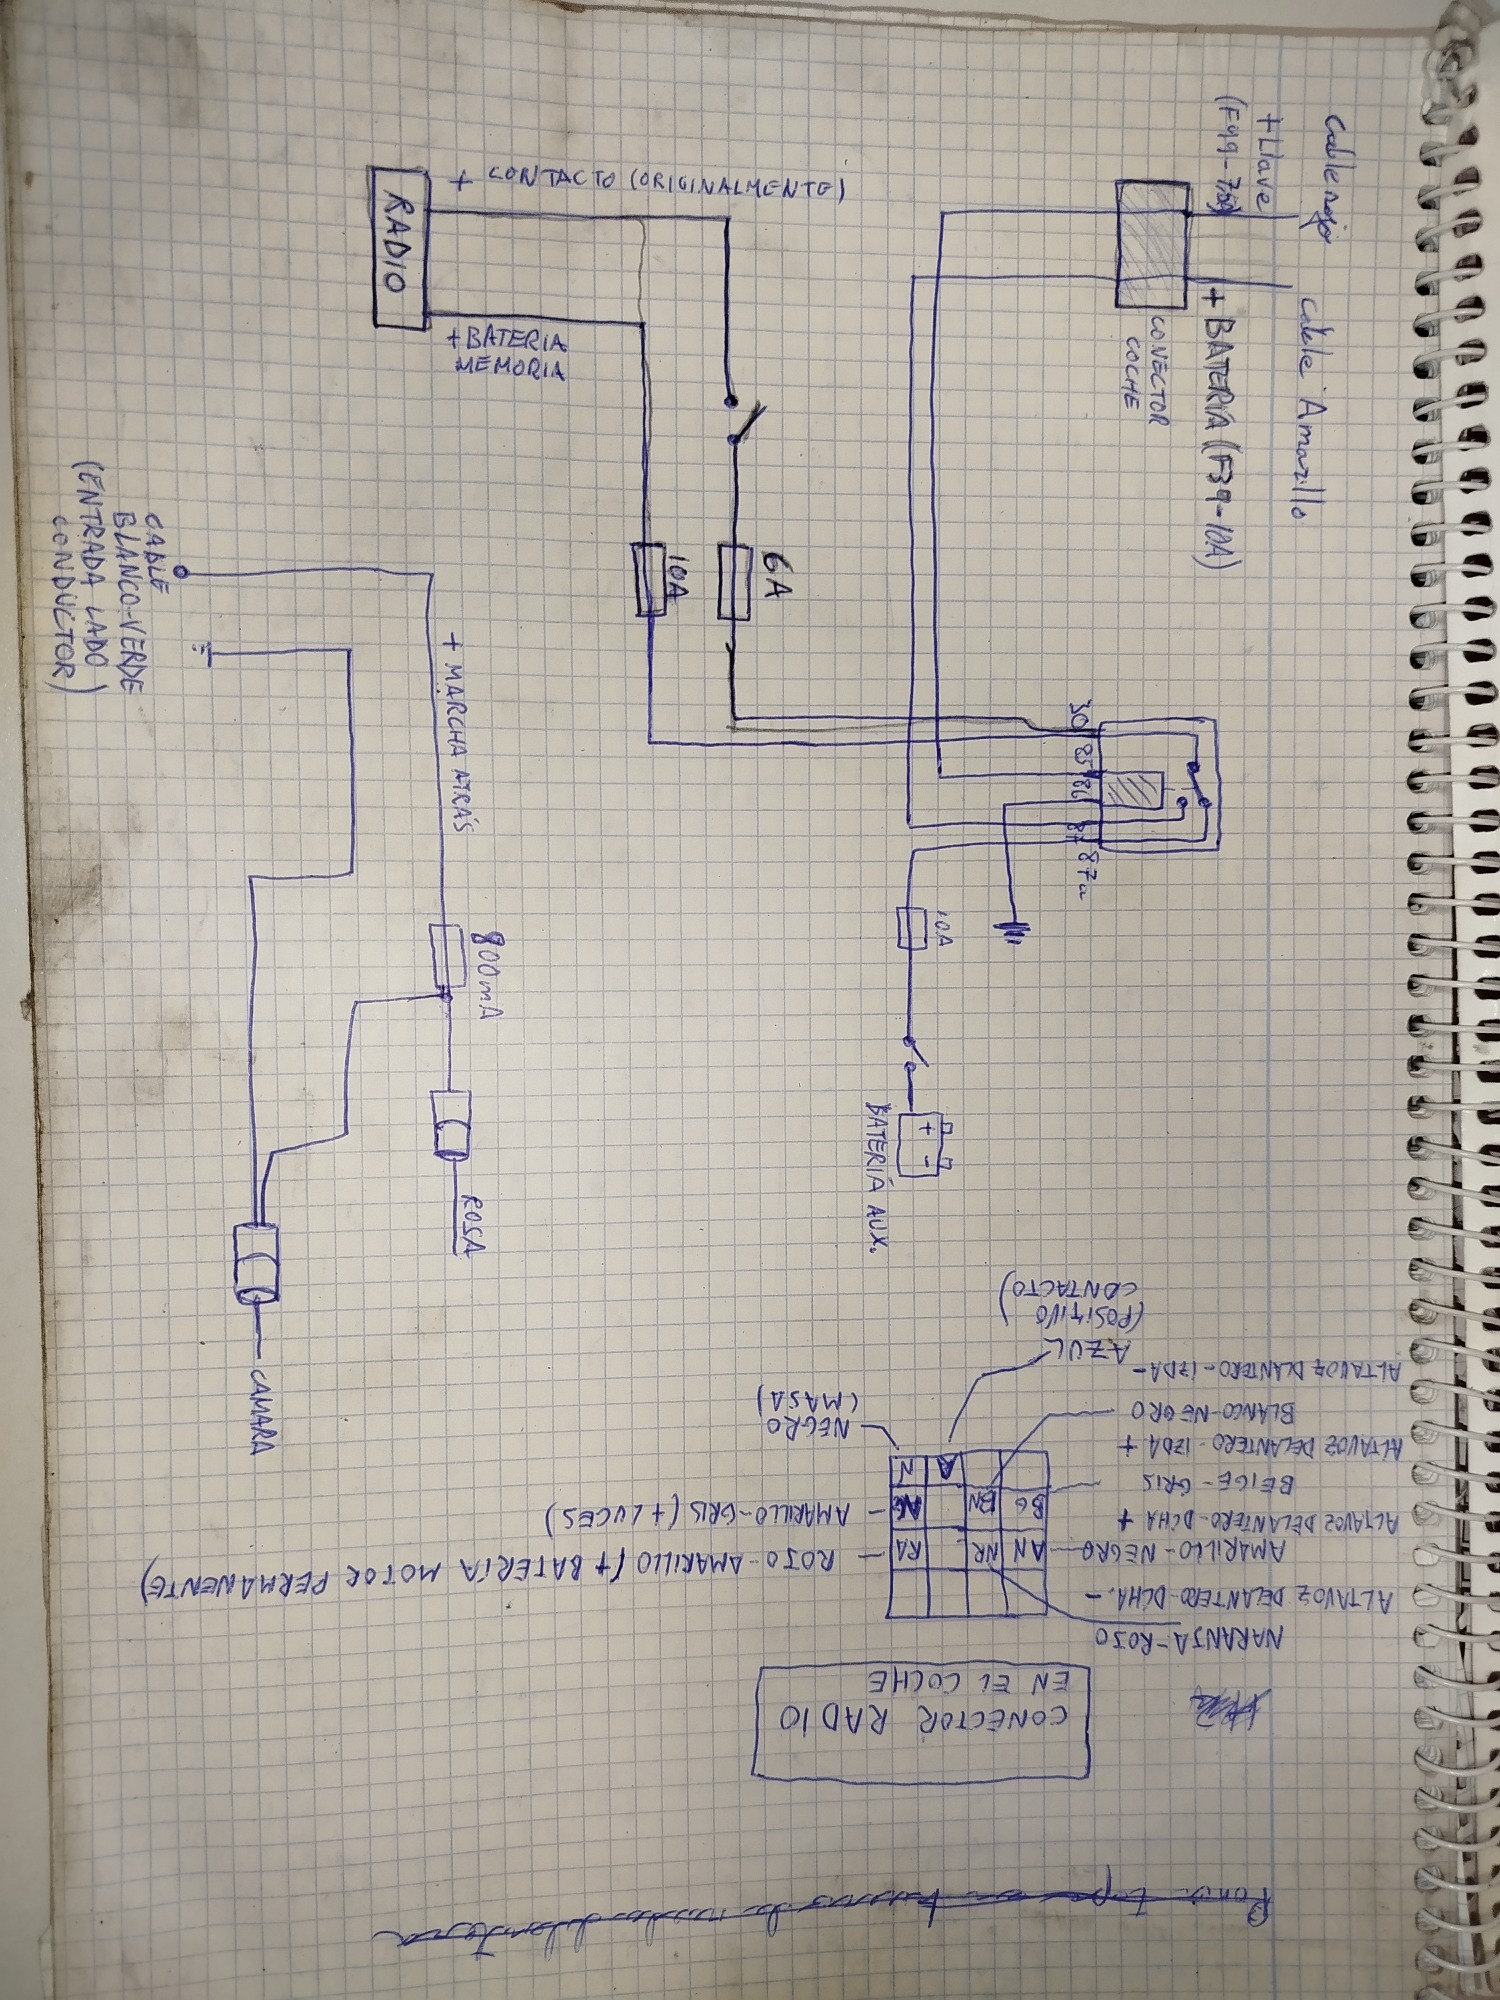 Cable rojo
+ Llave
(F49-7,5A)
Cable Amarillo
+ BATERIA (F39-10A)
CONECTOR
COCHE
+ CONTACTO (ORIGINALMENTE)
RADIO
+BATERIA
MEMORIA
6A
10A
30
85
86
87
87a
10A
+ -
BATERIA AUX.
CABLE
BLANCO-VERDE
(ENTRADA LADO
CONDUCTOR)
+ MARCHA ATRÁS
800mA
ROSA
CAMARA
CONECTOR RADIO
EN EL COCHE
NARANJA-ROJO
ALTAVOZ DELANTERO-DCHA.-
AMARILLO-NEGRO
ALTAVOZ DELANTERO-DCHA +
BEIGE-GRIS
ALTAVOZ DELANTERO-IZDA +
BLANCO-NEGRO
ALTAVOZ DLANTERO-IZDA-
AZUL
(POSITIVO
CONTACTO)
AN NR RA
BG BN AG
A N
ROJO-AMARILLO (+ BATERÍA MOTOR PERMANENTE)
AMARILLO-GRIS (+ LUCES)
NEGRO
(MASA)